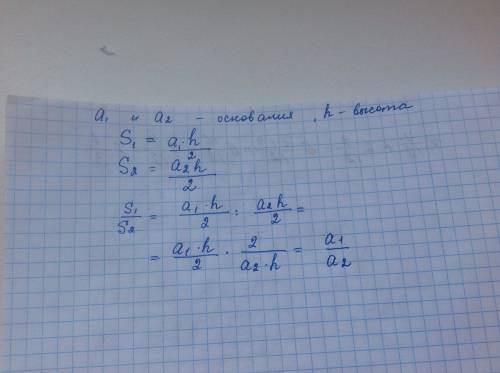 a₁ и a₂ - основания, h - высота
S₁ = a₁·h/2
S₂ = a₂h/2
S₁/S₂ = a₁·h/2 : a₂h/2 =
= a₁·h/2 · 2/a₂·h = a₁/a₂